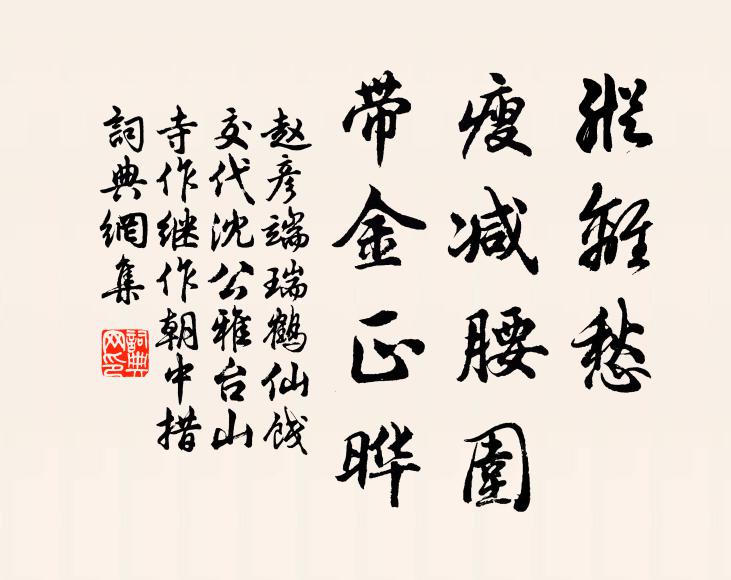 縱離愁
瘦减腰圍
带金正晔
赵彦端瑞鹤仙饯
交代沈公雅台山
寺作继作朝中措
詞典網集
詞典网印